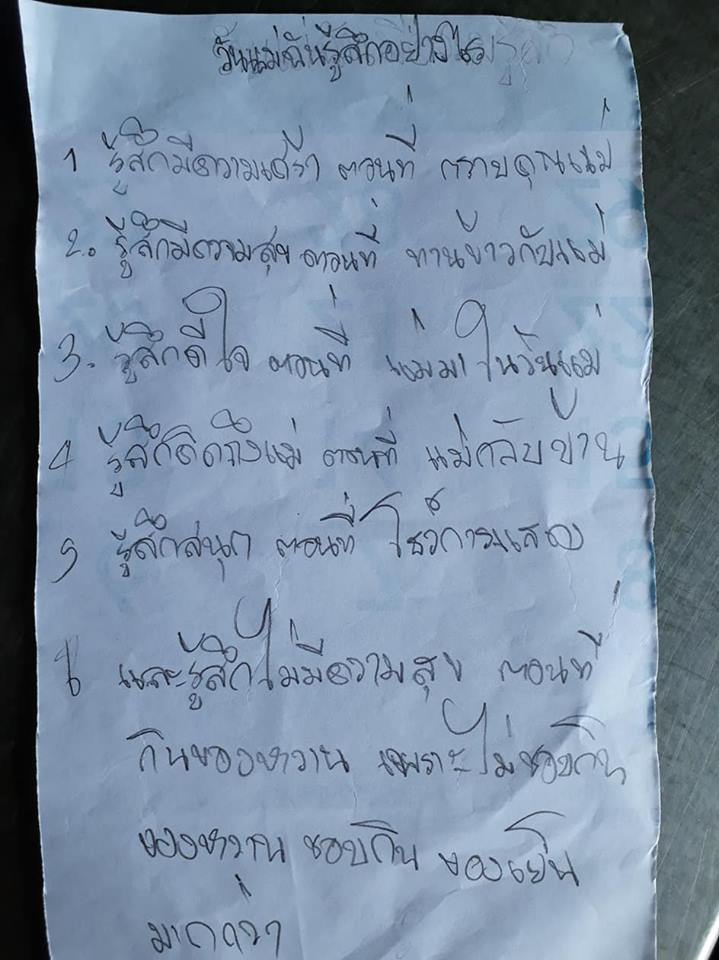 วันแม่ฉันรู้สึกอย่างไร
1 รู้สึกมีความเศร้า ตอนที่ กราบคุณแม่
2. รู้สึกมีความสุข ตอนที่ ทานข้าวกับแม่
3. รู้สึกดีใจ ตอนที่ แม่มาในวันแม่
4 รู้สึกคิดถึงแม่ ตอนที่ แม่กลับบ้าน
5 รู้สึกสนุก ตอนที่ โชว์การแสดง
และรู้สึกไม่มีความสุข ตอนที่
กินของหวาน เพราะไม่ชอบกิน
ของหวาน ชอบกิน ของเย็น
มากกว่า